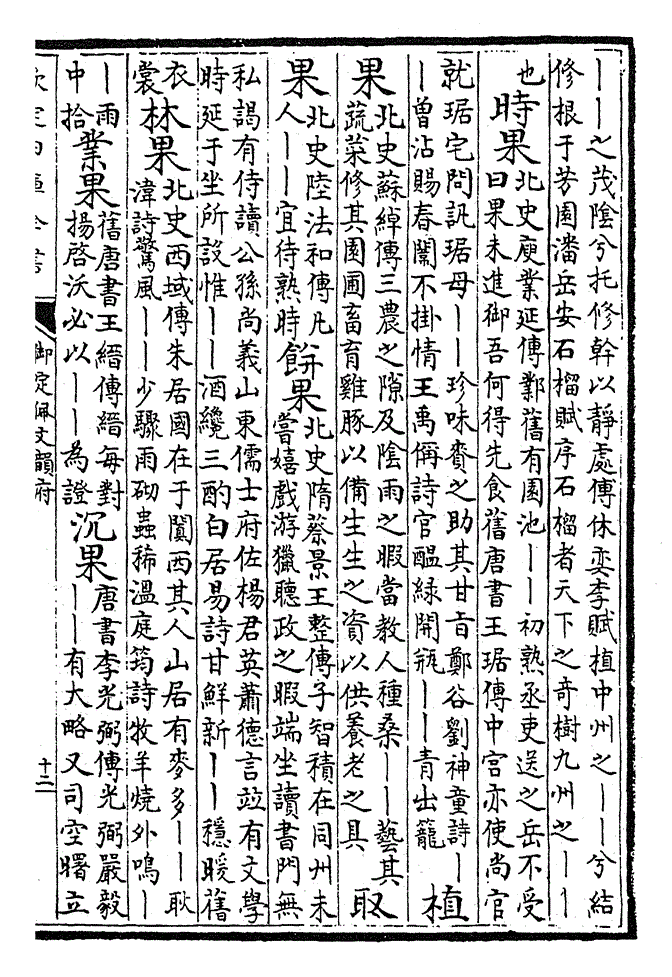 ｜｜之茂陰兮托修幹以靜處傅休奕李賦植中州之｜｜兮結
修根于芳園潘岳安石榴賦序石榴者天下之奇樹九州之｜｜
也
時果
北史庾業延傳鄴舊有園池｜｜初熟丞吏送之岳不受
曰果未進御吾何得先食舊唐書王琚傳中宮亦使尚官
就琚宅問訊琚母｜｜珍味賚之助其甘旨鄭谷劉神童詩｜
｜曾沾賜春闈不掛情王禹偁詩官醖綠開瓶｜｜青出籠
植
果
北史蘇綽傳三農之隙及陰雨之暇當教人種桑｜｜藝其
蔬菜修其園圃畜育雞豚以備生生之資以供養老之具
取
果
北史陸法和傳凡
人｜｜宜待熟時
餅果
北史隋蔡景王整傳子智積在同州未
嘗嬉戲游獵聽政之暇端坐讀書門無
私謁有侍讀公孫尚義山東儒士府佐楊君英蕭德言竝有文學
時延于坐所設惟｜｜酒纔三酌白居易詩甘鮮新｜｜穩暖舊
衣
裳
林果
北史西域傳朱居國在于闐西其人山居有麥多｜｜耿
湋詩驚風｜｜少驟雨砌蟲稀溫庭筠詩牧羊燒外鳴｜
｜雨
中拾
業果
舊唐書王縉傳縉每對
揚啓沃必以｜｜為證
沉果
唐書李光弼傳光弼嚴毅
｜｜有大略又司空曙立
欽定四庫全書
御定佩文韻府
十二